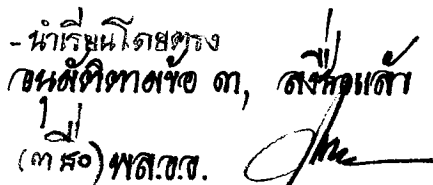 - นำเรียนโดยตรง
อนุมัติตามข้อ ๓, ลงชื่อแล้ว
พล.อ.อ.